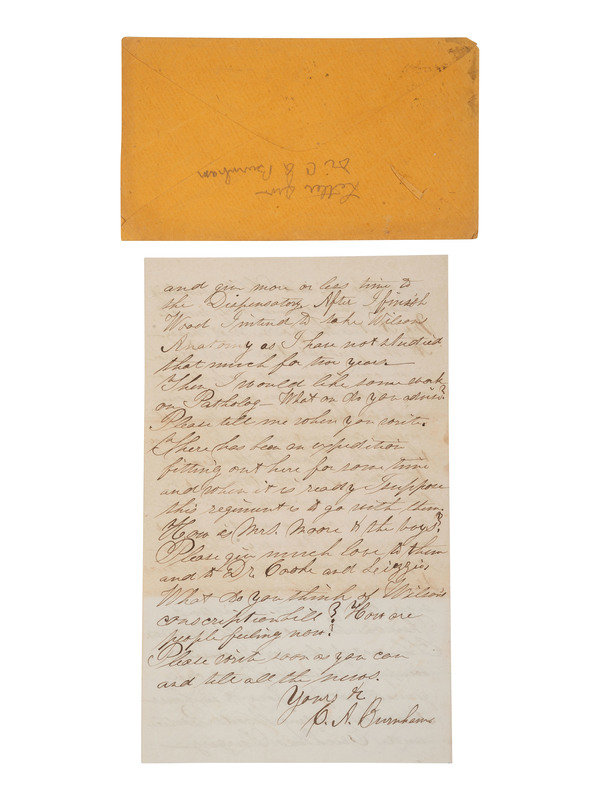 Letter from
Dr C A Burnham
and give more or less time to
the Dispensatory After I finish
Wood I intend to take Wilsons
Anatomy as I have not studied
that much for two years
Then I would like some work
on Patholog— What one do you advise?
Please tell me when you write.
There has been an expedition
fitting out here for some time
and when it is ready I suppose
this regiment is to go with them.
How is Mrs. Moore & the boys?
Please give much love to them
and to Dr. Cooke and Lizzie
What do you think of Wilsons
conscription bill? How are
people feeling now?
Please write soon as you can
and tell all the news.
Yours &c
C. A. Burnham